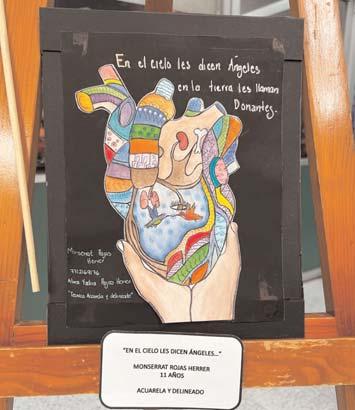 En el cielo les dicen Ángeles
en la tierra les llaman
Donantes.
Monserrat Rojas
Herrer
Rojas Herrer
"Tecnica Acuarela y delineado"
"EN EL CIELO LES DICEN ÁNGELES..."
MONSERRAT ROJAS HERRER
11 AÑOS
ACUARELA Y DELINEADO